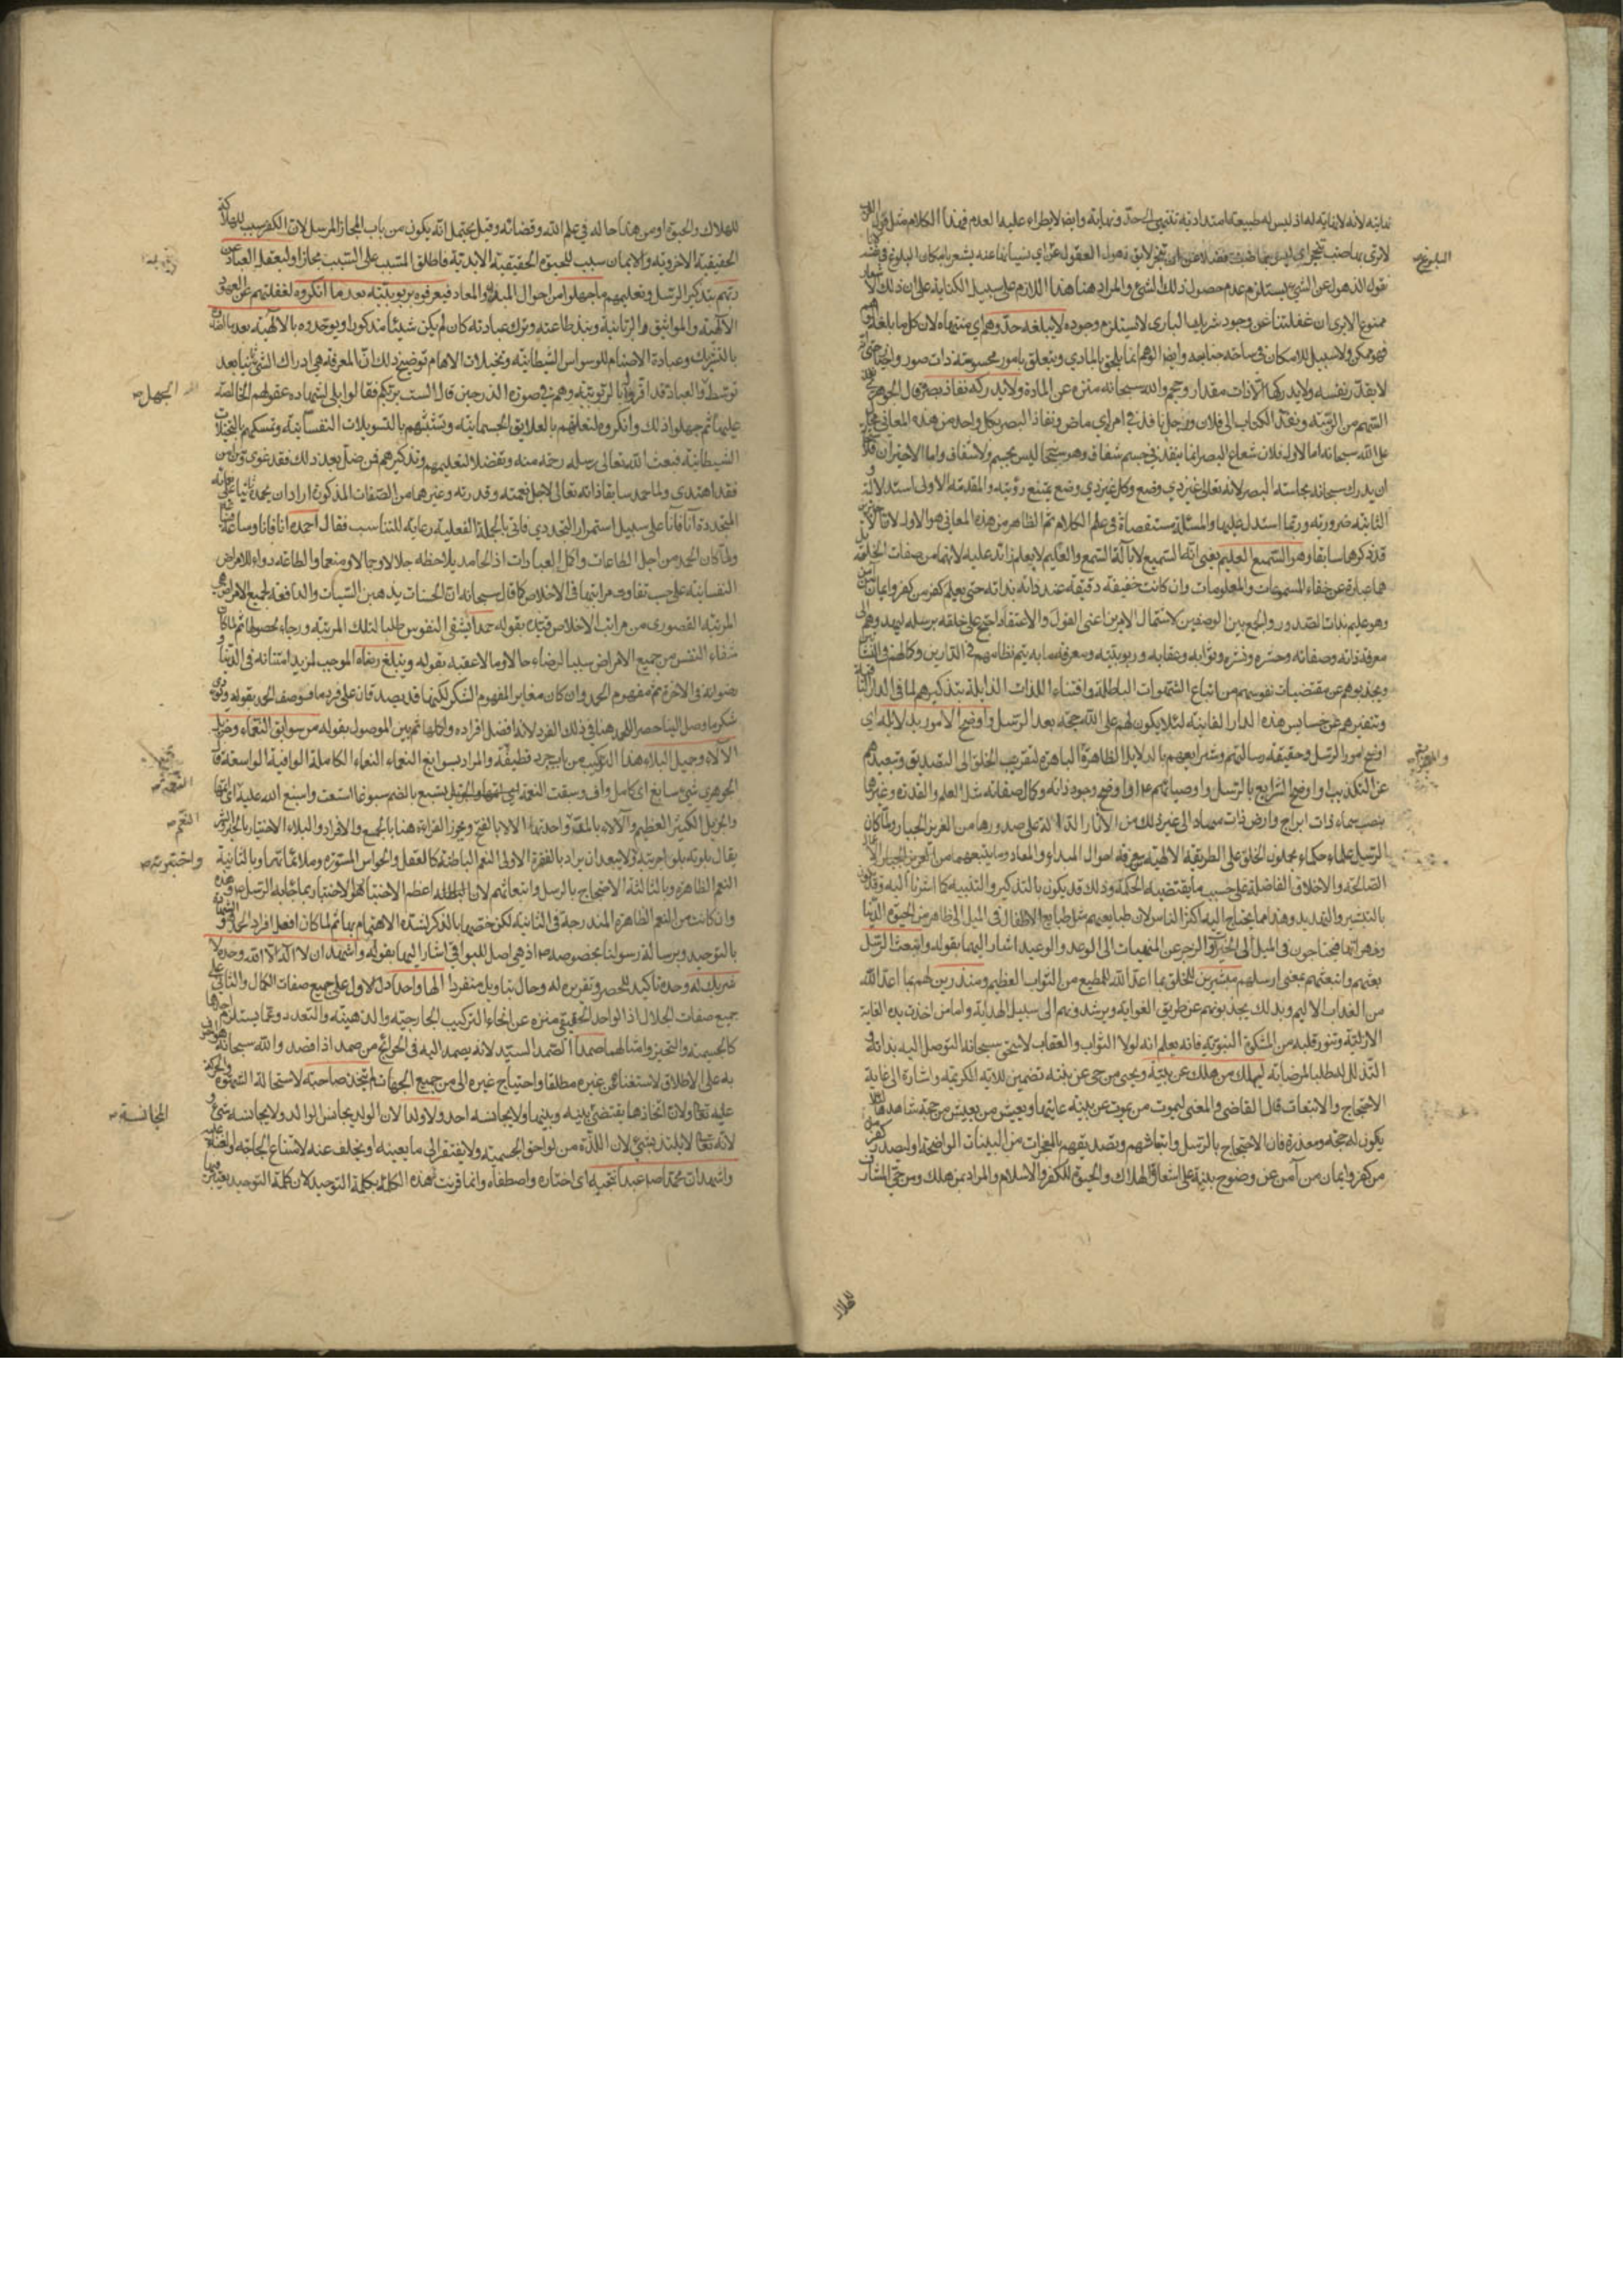 نهاية لانه لا نهاية له اذ ليس له طبيعة امتدادية تنتهي الى حدّ ونهاية وايضا لا يطراء عليه العدم فهذا الكلام مثل قول العرب
لا ترى بها ضب ينجحر اي ليس بها ضب فضلا عن ان ينجحر لا يق ذهول العقول عن اي نسيانها عنه يشعر بامكان البلوغ
البلوغ صح
نقول الذهول عن الشيء يستلزم عدم حصول ذلك الشيء والمراد هنا هذا اللازم على سبيل الكناية على ان ذلك الاشعار
ممنوع الا يرى ان غفلتنا عن وجود شريك الباري لا يستلزم وجوده لا يبلغه حدّ وهم اي منتهاه لان كل ما بلغه الوهم
فهو ممكن ولا سبيل للامكان في ساحة جنابه وايضا الوهم انما يلحق بالمادي ويتعلق بامور محسوسة ذات صور
لا يقدر بنفسه ولا يدركها الا ذات مقدار وحجم والله سبحانه منزه عن المادة ولا يدركه نفاذ بصر قال الجوهري نفذ
السهم من الرمية ونفذ الكتاب الى فلان ورجل نافذ في امره اي ماض ونفاذ البصر بكل واحد من هذه المعاني محال
على الله سبحانه اما الاول فلان شعاع البصر انما ينفذ في جسم شفاف وهو سبحانه ليس بجسم ولا شفاف واما الاخيران فلا
ان يدرك سبحانه بحاسة البصر لانه تعالى غير ذي وضع وكل غير ذي وضع يمتنع رؤيته والمقدمة الاولى استدلالية و
الثانية ضرورية وربما استدل عليها والمسئلة مستقصاة في علم الكلام ثم الظاهر من هذه المعاني هو الاول لان الاخيرين
قد ذكرهما سابقا وهو السميع العليم يعني انه السميع لا بآلة السمع والعليم لا بعلم زائد عليه لانهما من صفات الخلق بل
هما عبارة عن خفاء المسموعات والمعلومات وان كانت خفيفة دقيقة عند ذاته بذاته حتى يعلم كفر من كفر وايمان من آمن
وهو عليم بذات الصدور والجمع بين الوصفين لاشتمال الامرين اعني القول والاعتقاد احتج على خلقه برسله ليهدوهم الى
معرفة ذاته وصفاته وحشره ونشره وثوابه وعقابه وربوبيته ومعرفة ما به يتم نظامهم في الدارين وكمالهم في النشأتين
ويجذبوهم عن مقتضيات نفوسهم من اتباع الشهوات الباطلة واقتناء اللذات الزايلة بتذكيرهم لما في الدار الباقية
وتنفيرهم عن خسايس هذه الدار الفانية لئلا يكون لهم على الله حجة بعد الرسل واوضح الامور بدلايله اي
اوضح امور الرسل وحقيقة رسالتهم وشرايعهم بالدلايل الظاهرة الباهرة لتقريب الخلق الى التصديق وتبعيدهم
عن التكذيب او اوضح الشرايع بالرسل واوصيائهم او اوضح وجود ذاته وكمال صفاته مثل العلم والقدرة وغيرها
بنصب سماء ذات ابراج وارض ذات مهاد الى غير ذلك من الآثار الدالة على صدورها من العزيز الجبار ولما كان
الرسل علماء حكماء يحملون الخلق على الطريقة الالهية بمعرفة احوال المبداء والمعاد وما يتبعهما من
الصالحة والاخلاق الفاضلة على حسب ما يقتضيه الحكمة وذلك قد يكون بالتذكير والتنبيه كما اشرنا اليه وقد يكون
بالتبشير والتهديد وهذا مما يحتاج اليه اكثر الناس لان طبايعهم مثل طبايع الاطفال في الميل الى ظاهر من الحيوة الدنيا
وزهراتها فيحتاجون في الميل الى الخيرات والزجر عن المنهيات الى الوعد والوعيد اشار اليهما بقوله وابتعث الرسل
بعثهم وابتعثهم بمعنى ارسلهم مبشرين للخلق بما اعد الله للمطيع من الثواب العظيم ومنذرين لهم بما اعد الله
من العذاب الاليم وبذلك يجذبونهم عن طريق الغواية ويرشدونهم الى سبيل الهداية واما من اخذت يده العناية
الازلية وتنور قلبه من المشكوة النبوية فانه يعلم انه لولا الثواب والعقاب لاستحق سبحانه التوصل اليه بذاته و
التذلل له طلبا لمرضاته ليهلك من هلك عن بينة ويحيى من حي عن بينة تضمين للآية الكريمة واشارة الى غاية
الاحتجاج والابتعاث قال القاضي والمعنى ليموت من يموت عن بينة عاينها ويعيش من يعيش عن حجة شاهدها لئلا
يكون له حجة ومعذرة فان الاحتجاج بالرسل وابتعاثهم وتصديقهم بالمعجزات من البينات الواضحة او ليصدر كفر
من كفر وايمان من آمن عن وضوح بينة على استعارة الهلاك والحيوة للكفر والاسلام والمراد بمن هلك ومن حي المشارف
للهلاك
للهلاك والحيوة او من هذا حاله في علم الله وقضائه وقيل يحتمل انه يكون من باب المجاز المرسل لان الكفر سبب للهلاكة
الحقيقية الاخروية والايمان سبب للحيوة الحقيقية الابدية فاطلق المسبب على السبب مجازا وليعقل العباد عن
ربهم بتذكير الرسل وتعليمهم ما جهلوا من احوال المبداء والمعاد فيعرفوه بربوبيته بعد ما انكروه لغفلتهم عن العهود
الالهية والمواثيق الربانية ونبذ طاعته وترك عبادته كان لم يكن شيئا مذكورا ويوحدوه بالالهية بعد ما
بالتشريك وعبادة الاصنام للوسواس الشيطانية وتخيلات الاوهام توضيح ذلك ان المعرفة هي ادراك الشيء ثانيا بعد
توسط الجهل والعباد قد اقروا له بالربوبية وهم في صورة الذر حين قال الست بربكم فقالوا بلى لشهادة عقولهم الخالصة
الجهل صح
عليها ثم جهلوا ذلك وانكروه لتعلقهم بالعلايق الجسمانية وتشبثهم بالتسويلات النفسانية وتمسكهم بالتخيلات
الشيطانية فبعث الله تعالى رسله رحمة منه وتفضلا لتعليمهم وتذكيرهم فمن ضل بعد ذلك فقد غوى ومن
فقد اهتدى ولما حمد سابقا ذاته تعالى لاجل نعمته وقدرته وغيرهما من الصفات المذكورة اراد ان يحمده ثانيا
المتجددة آنا فآنا على سبيل استمرار التجددي فاتى بالجملة الفعلية رعاية للتناسب فقال احمده انا فانا وساعة
ولما كان الحمد من اجل الطاعات واكمل العبادات اذ الحامد يلاحظه جلالا وجمالا ومنعما والطاعة دواء للامراض
النفسانية على حسب تفاوت مراتبها في الاخلاص كما قال سبحانه ان الحسنات يذهبن السيئات والدافعة لجميع الامراض هي
المرتبة القصوى من مراتب الاخلاص قيده بقوله حمدا يشفي النفوس طلبا لتلك المرتبة ورجاء لحصولها ثم لما كان
شفاء النفس من جميع الامراض سببا لرضاه حالا ومالا عقبه بقوله ويبلغ رضاه الموجب لمزيد امتنانه في الدنيا و
رضوانه في الآخرة ثم مفهوم الحمد وان كان مغاير المفهوم الشكر لكنهما قد يصدقان على فرد ما فوصف الحمد بقوله ويؤدي
شكر ما وصل الينا حصر للحمد هنا في ذلك الفرد لانه افضل افراده واكملها ثم بين الموصول بقوله من سوابغ النعماء وجزيل
الآلاء وجميل البلاء هذا التركيب من باب جرد قطيفة والمراد بسوابغ النعماء النعماء الكاملة الوافية الواسعة قال
الجوهري شيء سابغ اي كامل واف وسبغت النعمة تسبغ بالضم سبوغا اتسعت واسبغ الله عليه النعمة اي اتمها
النعمة صح
والجزيل الكثير العظيم والآلاء بالمد واحدتها الالا بالفتح ويجوز القراءة هنا بالجمع والافراد والبلاء الاختبار بالخير والشر
النعم صح
يقال بلوته بلوا جربته ولا يبعد ان يراد بالفقرة الاولى النعم الباطنة كالعقل والحواس المستورة وملائماتها وبالثانية
واختبرته صح
النعم الظاهرة وبالثالثة الاحتجاج بالرسل وابتعاثهم لان اعظم الاختبار هو الاختبار بما جاء به الرسل وهذه
وان كانت من النعم الظاهرة المندرجة في الثانية لكن خصها بالذكر لشدة الاهتمام بها ثم لما كان افضل افراد الحمد هو الشهادة
بالتوحيد وبرسالة رسولنا بخصوصه اذ هي اصل للبواقي اشار اليها بقوله واشهد ان لا اله الا الله وحده لا
شريك له وحده تأكيد للحصر وتقرير له وحال بتاويل منفردا الها واحدا دل الاول على جميع صفات الكمال والثاني على
جميع صفات الجلال اذ الواحد الحقيقي منزه عن انحاء التركيب الخارجية والذهنية والتعدد وعما يستلزم احدهما
كالجسمية والتحيز وامثالهما صمدا الصمد السيد لانه يصمد اليه في الحوائج من صمد اذا قصد والله سبحانه هو الموصوف
به على الاطلاق لاستغنائه عن غيره مطلقا واحتياج غيره الى من جميع الجهات لم يتخذ صاحبة لاستحالة الشهوة والحركة
عليه تعالى ولان اتخاذها يقتضي بينه وبينها ولا يجانسه احد ولا ولدا لان الولد يجانس الوالد ولا يجانسه شيء و
المجانسة صح
لانه تعالى لا يلتذ بشيء لان اللذة من لواحق الجسمية ولا يفتقر الى ما يعينه او يخلف عنه لامتناع الحاجة والفناء عليه
واشهد ان محمدا صلعم عبد انتجبه اي اختاره واصطفاه وانما قرنت هذه الكلمة بكلمة التوحيد لان كلمة التوحيد